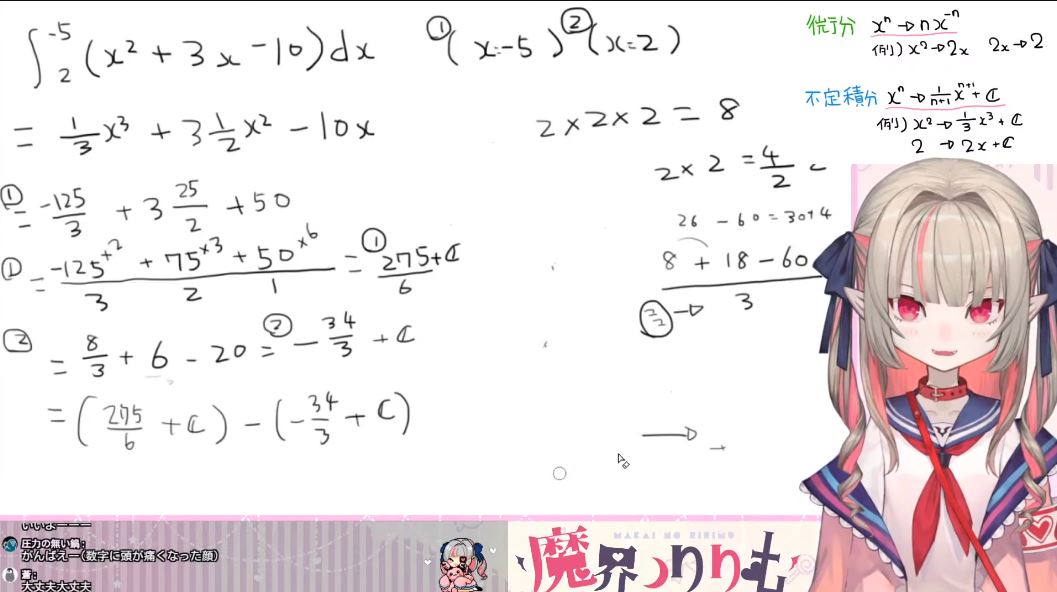 ∫₂⁻⁵ (x² + 3x - 10) dx
① (x=-5) ② (x=2)
= 1/3 x³ + 3 1/2 x² - 10x
① = -125/3 + 3 25/2 + 50
① = -125ˣ²/3 + 75ˣ³/2 + 50ˣ⁶/1 = ① 275+C/6
② = 8/3 + 6 - 20 = ② -34/3 + C
= (275/6 + C) - (-34/3 + C)
2×2×2 = 8
2×2 = 4/2
26 - 60 = 30+4
8 + 18 - 60
3
→
微分 xⁿ→nx⁻ⁿ
例) x²→2x 2x→2
不定積分 xⁿ→1/n+1 xⁿ⁺¹+C
例) x²→1/3 x³+C
2 →2x+C
いいよーーー
圧力の無い鍋:
がんばえー(数字に頭が痛くなった顔)
大丈夫大丈夫
MAKAI NO RIRIMU
魔界ノりりむ